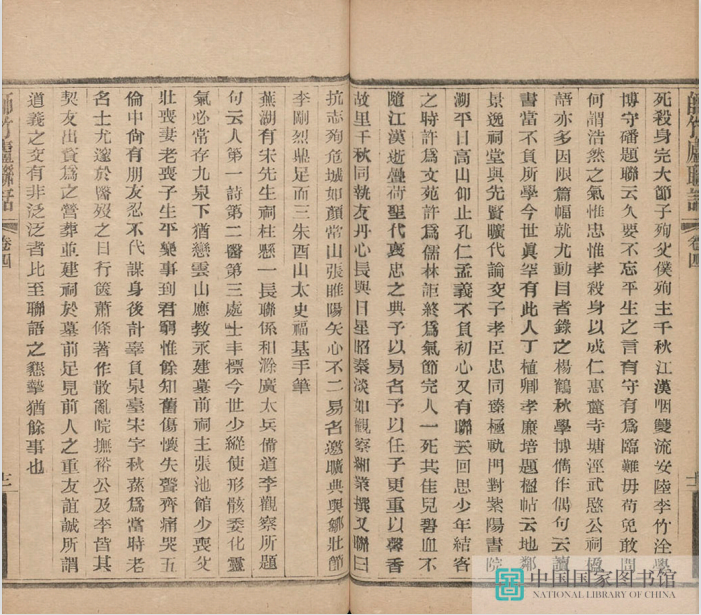 死殺身完大節子殉父僕殉主千秋江漢咽雙流安陸李竹淦學
博守礄題聯云久要不忘平生之言有守有爲臨難毋苟免敢問
何謂浩然之氣惟忠惟孝殺身以成仁惠麓寺塘涇武愍公祠楹
語亦多因限篇幅就尤動目者錄之楊鶴秋學博儁作偶句云讀
書當不負所學今世眞罕有此人丁植卿孝廉培題楹帖云地鄰
景逸祠堂與先賢曠代論交子孝臣忠同臻極軌門對紫陽書院
溯平日高山仰止孔仁孟義不負初心又有聯云回思少年結客
之時許爲文苑許爲儒林詎終爲氣節完人一死共佳兒碧血不
隨江漢逝疊荷聖代褒忠之典予以易名予以任子更重以馨香
故里千秋同執友丹心長與日星昭秦淡如觀察緗業撰又聯曰
抗志殉危城如顏常山張睢陽矢心不二易名邀曠典與鄒壯節
李剛烈鼎足而三朱酉山太史福基手筆
蕪湖有宋先生祠柱懸一長聯係和滁廣太兵備道李觀察所題
句云人第一詩第二醫第三處士丰標今世少縱使形骸委化靈
氣必常存九泉下猶戀雲山應教永建墓前祠主張池館少喪父
壯喪妻老喪子生平樂事到君窮惟餘知舊傷懷失聲齊痛哭五
倫中尙有朋友忍不代謀身後計辜負泉臺宋字秋蓀爲當時老
名士尤邃於醫歿之日行篋蕭條著作散亂皖撫裕公及李皆其
契友出貲爲之營葬並建祠於墓前足見前人之重友誼誠所謂
道義之交有非泛泛者比至聯語之懇摯猶餘事也
師竹廬聯話
卷四
十二
師竹廬聯話
卷四
十三
中国国家图书馆
NATIONAL LIBRARY OF CHINA